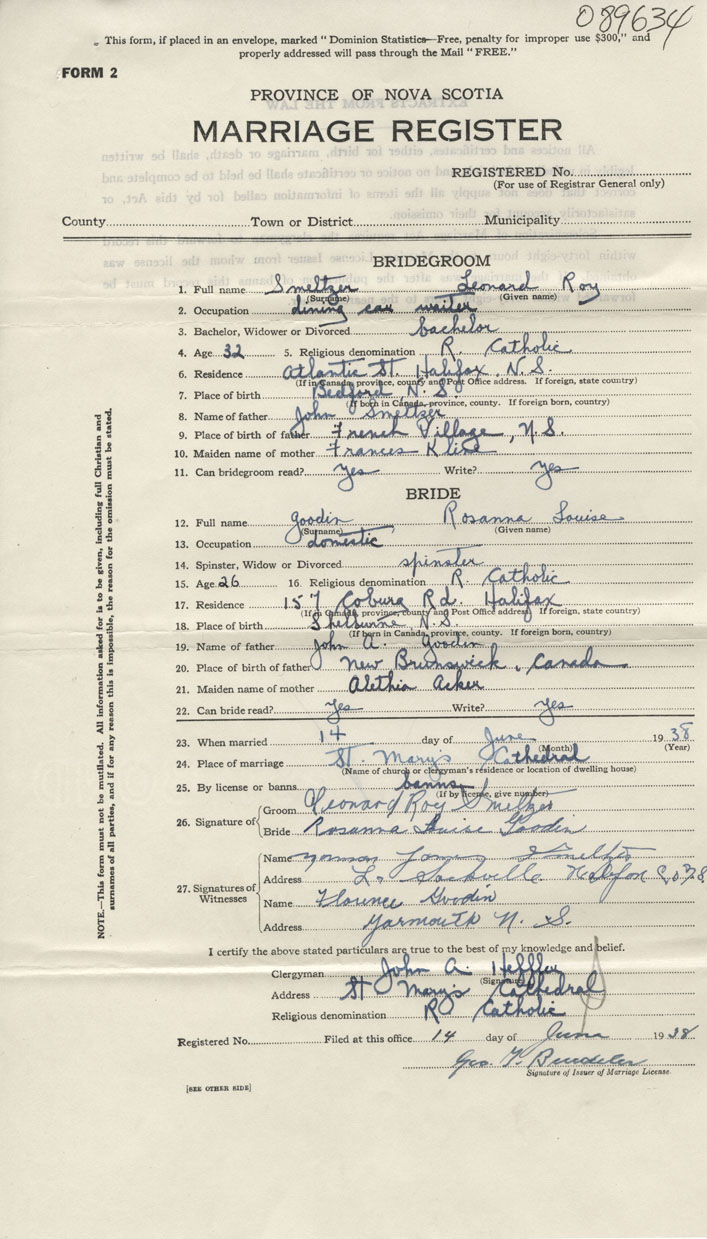 089634
„ This form, if placed in an envelope, marked "Dominion Statistics—Free, penalty for improper use $300," and
properly addressed will pass through the Mail "FREE."
FORM 2
PROVINCE OF NOVA SCOTIA
MARRIAGE REGISTER
REGISTERED No.
(For use of Registrar General only)
County Town or District Municipality
BRIDEGROOM
1. Full name Smeltzer Leonard Roy
(Surname) (Given name)
2. Occupation dining car waiter
3. Bachelor, Widower or Divorced bachelor
4. Age 32 5. Religious denomination R. Catholic
6. Residence Atlantic St. Halifax, N.S.
(If in Canada, province, county and Post Office address. If foreign, state country)
7. Place of birth Bedford N.S.
(If born in Canada, province, county. If foreign born, country)
8. Name of father John Smeltzer
9. Place of birth of father French Village, N.S.
10. Maiden name of mother Frances Kline
11. Can bridegroom read? Yes Write? Yes
BRIDE
12. Full name Goodin Rosanna Louise
(Surname) (Given name)
13. Occupation domestic
14. Spinster, Widow or Divorced spinster
15. Age 26 16. Religious denomination R. Catholic
17. Residence 157 Coburg Rd. Halifax
(If in Canada, province, county and Post Office address If foreign, state country)
18. Place of birth Shelburne, N.S.
(If born in Canada, province, county. If foreign born, country)
19. Name of father John A. Goodin
20. Place of birth of father New Brunswick, Canada
21. Maiden name of mother Alethia Acker
22. Can bride read? Yes Write? Yes
23. When married 14 day of June 1938
(Month) (Year)
24. Place of marriage St. Mary's Cathedral
(Name of church or clergyman's residence or location of dwelling house)
25. By license or banns banns
(If by license, give number)
26. Signature of Groom Leonard Roy Smeltzer
Bride Rosanna Louise Goodin
27. Signatures of Witnesses
Name Smeltzer
Address L. Sackville Halifax Co.
Name Florence Goodin
Address Yarmouth N. S.
I certify the above stated particulars are true to the best of my knowledge and belief.
Clergyman John A. Heffler
(Signature)
Address St Mary's Cathedral
Religious denomination R Catholic
Registered No. Filed at this office 14 day of June 1938
Geo. F.
Signature of Issuer of Marriage License.
[SEE OTHER SIDE]
NOTE.—This form must not be mutilated. All information asked for is to be given, including full Christian and
surnames of all parties, and if for any reason this is impossible, the reason for the omission must be stated.